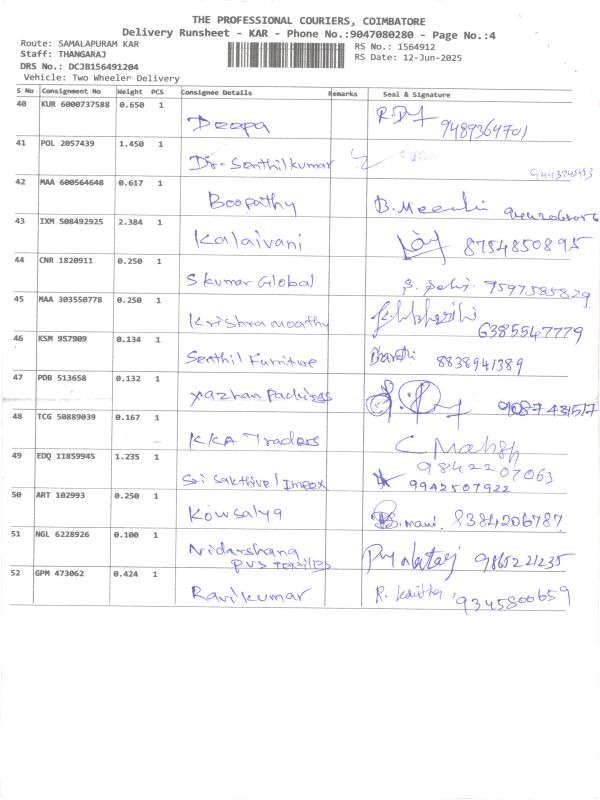 THE PROFESSIONAL COURIERS, COIMBATORE
Delivery Runsheet - KAR - Phone No.:9047080280 - Page No.:4
Route: SAMALAPURAM KAR RS No.: 1564912
Staff: THANGARAJ RS Date: 12-Jun-2025
DRS No.: DCJB156491204
Vehicle: Two Wheeler Delivery
S No Consignment No Weight PCS Consignee Details Remarks Seal & Signature
40 KUR 6000737588 0.650 1
Deepa 9489364701
41 POL 2057439 1.450 1
Dr. Senthilkumar
42 MAA 600564648 0.617 1
Boopathy B. Meenu
43 IXM 508492925 2.384 1
Kalaivani 8754850895
44 CNR 1820911 0.250 1
S kumar Global 7597585829
45 MAA 303550778 0.250 1
Krishna moorthy 6385547779
46 KSM 957909 0.134 1
Senthil Furniture 8838941389
47 PDB 513658 0.132 1
yazhan packings
48 TCG 50889039 0.167 1
KKA Traders C Mahesh
9842207063
49 EDQ 11859945 1.235 1
Sri Sakthivel Impex 9942507922
50 ART 102993 0.250 1
Kowsalya S. mani 8384206787
51 NGL 6228926 0.100 1
Nidarshana 9865221235
pvs textiles
52 GPM 473062 0.424 1
Ravikumar R. Kavitha 9345800659